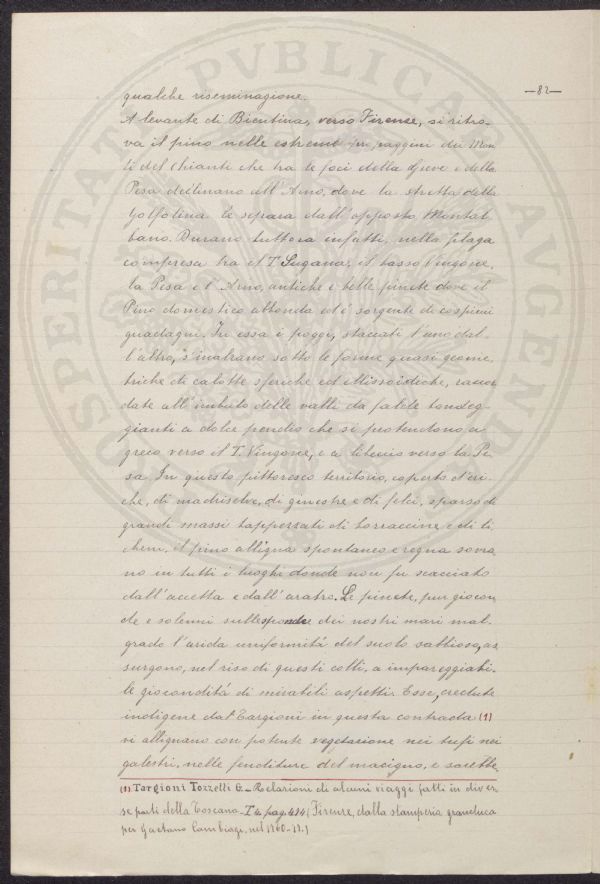 PVBLICAE
PROSPERITATI
AVGENDAE
—82—
qualche riseminagione.
A levante di Bientina, verso Firenze, si ritro-
va il pino nelle estreme propaggini dei Mon
ti del Chianti che tra le foci della Greve e della
Pesa declinano all'Arno, dove la stretta della
Golfolina le separa dall'opposto Montal
bano. Durano tuttora infatti, nella plaga
compresa tra il T. Sugana, il basso Vingone,
la Pesa e l'Arno, antiche e belle pinete dove il
Pino domestico abbonda ed è sorgente di cospicui
guadagni. In essa i poggi, staccati l'uno dal-
l'altro, s'inalzano sotto le forme quasi geome-
triche di calotte sferiche ed ellissoidiche, raccor
date all'imbuto delle valli da falde tondeg-
gianti a dolce pendio che si protendono a
greco verso il T. Vingone, e a libeccio verso la Pe-
sa. In questo pittoresco territorio, coperto d'eri-
che, di madriselve, di ginestre e di felci, sparso di
grandi massi tappezzati di borraccine e di li-
cheni, il pino alligna spontaneo e regna sovra
no in tutti i luoghi donde non fu scacciato
dall'accetta e dall'aratro. Le pinete, pur giocon
de e solenni sulle sponde dei nostri mari mal-
grado l'arida uniformità del suolo sabbioso, as
surgono, nel riso di questi colli, a impareggiabi-
le giocondità di mirabili aspetti. Esse, credute
indigene dal Targioni in questa contrada (1)
vi allignano con potente vegetazione nei tufi nei
galestri, nelle fenditure del macigno, e sarebbe
(1) Targioni Tozzetti G. – Relazioni di alcuni viaggi fatti in diver
se parti della Toscana – T. pag. 484 (Firenze, dalla stamperia granduca
per Gaetano Cambiagi, nel